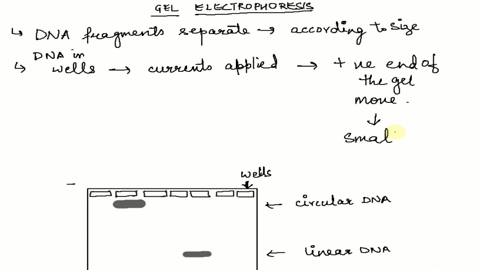 GEL ELECTROPHORESIS
↳ DNA fragments separate → according to size
DNA in
↳ wells → currents applied → + ve end of
the gel
move.
↓
Smal
wells
− 
← circular DNA
← linear DNA